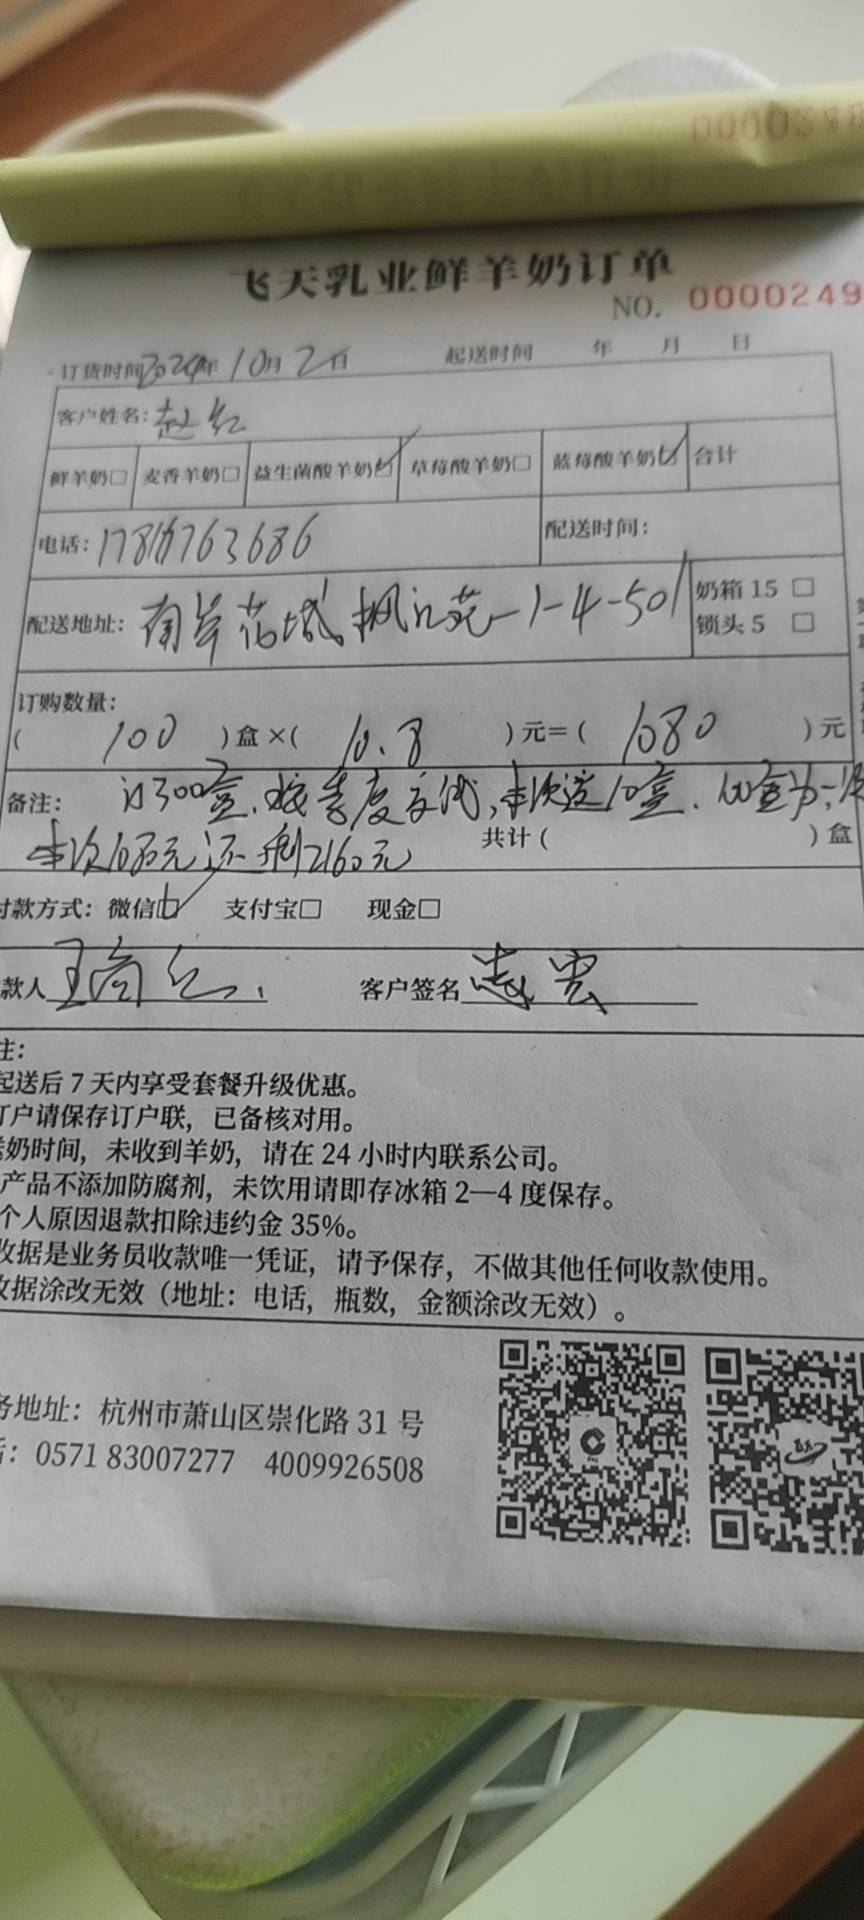 飞天乳业鲜羊奶订单
NO. 0000249
订货时间2024年10月2日 起送时间 年 月 日
客户姓名：赵红
鲜羊奶□ 麦香羊奶□ 益生菌酸羊奶☑ 草莓酸羊奶□ 蓝莓酸羊奶☑ 合计
电话： 763686 配送时间：
配送地址：南岸花城 枫江苑-1-4-501 奶箱 15 □
锁头 5 □
订购数量：
( 100 )盒×( 10.8 )元=( 1080 )元
备注：订300盒、按季度交代，本次送10盒、100盒为一
本次1080元还剩2160元 共计( )盒
付款方式：微信☑ 支付宝□ 现金□
款人王 客户签名
注：
起送后 7 天内享受套餐升级优惠。
订户请保存订户联，已备核对用。
送奶时间，未收到羊奶，请在 24 小时内联系公司。
产品不添加防腐剂，未饮用请即存冰箱 2—4 度保存。
个人原因退款扣除违约金 35%。
收据是业务员收款唯一凭证，请予保存，不做其他任何收款使用。
收据涂改无效（地址：电话，瓶数，金额涂改无效）。
务地址：杭州市萧山区崇化路 31 号
：0571 83007277 4009926508